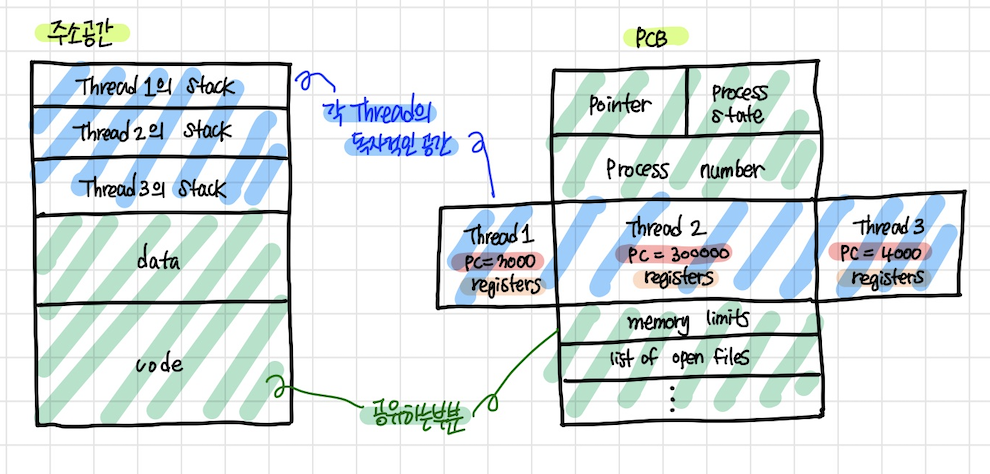 주소공간
Thread 1의 stack
Thread 2의 stack
Thread 3의 stack
data
code
각 Thread의
독자적인 공간
공유하는부분
PCB
pointer
process
state
Process number
Thread 1
PC=3000
registers
Thread 2
PC = 300000
registers
Thread 3
PC = 4000
registers
memory limits
list of open files
⋮